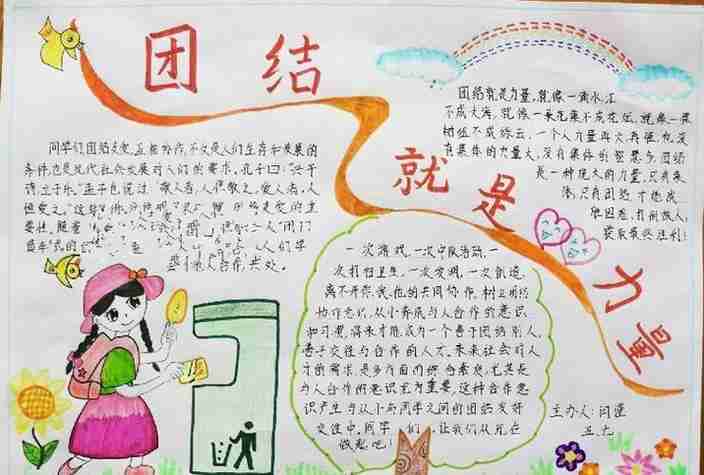 团结
就是
力量
同学们团结友爱,互相协作,不仅是人们生存和发展的
条件也是现代社会发展对人们的要求。孔子曰:"兴于
诗立于礼。"孟子也说过"敬人者,人恒敬之,爱人者,人
恒爱之。"这
性。随着
团结就是力量,就像一滴水汇
不成大海,就像一朵花象不成花园,就像一棵
树组不成绿云,一个人力量再大再强,也没
有集体的力量大,没有集体的智慧多。团结
是一种强大的力量,只有集
体,只有团结,才能战
胜困难,打倒敌人,
获取最终胜利!
一次游戏,一次中队活动,一
次打扫卫生,一次发明,一次创造,
离不开你、我、他的共同协作。树立团结
协作意识,从小养成与人合作的意识
和习惯,将来才能成为一个善于团结别人,
善于交往与合作的人才。未来社会对人
才的需求是多方面的综合素质,尤其是
与人合作的意识尤为重要,这种合作意
识产生与从小和同学之间的团结友好
交往中。同学们,让我们从现在
做起吧!
主办人:闫莲
五.六